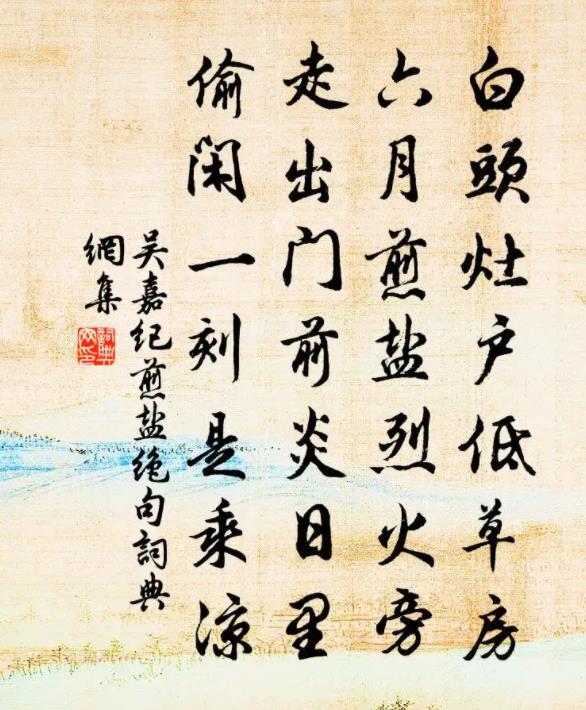 白頭灶户低草房
六月煎盐烈火旁
走出门前炎日里
偷闲一刻是乘凉
吴嘉纪煎盐绝句詞典
網集
詞典